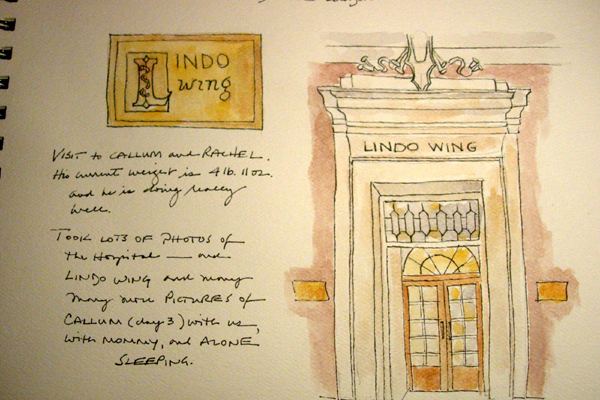 LINDO
wing
VISIT to CALLUM and RACHEL.
His current weight is 4 lb. 11 oz.
and he is doing really
well.
TOOK LOTS OF PHOTOS of
the Hospital — and
LINDO WING and many
many more PICTURES of
CALLUM (day 3) with us,
with MOMMY, and ALONE
SLEEPING.
LINDO WING